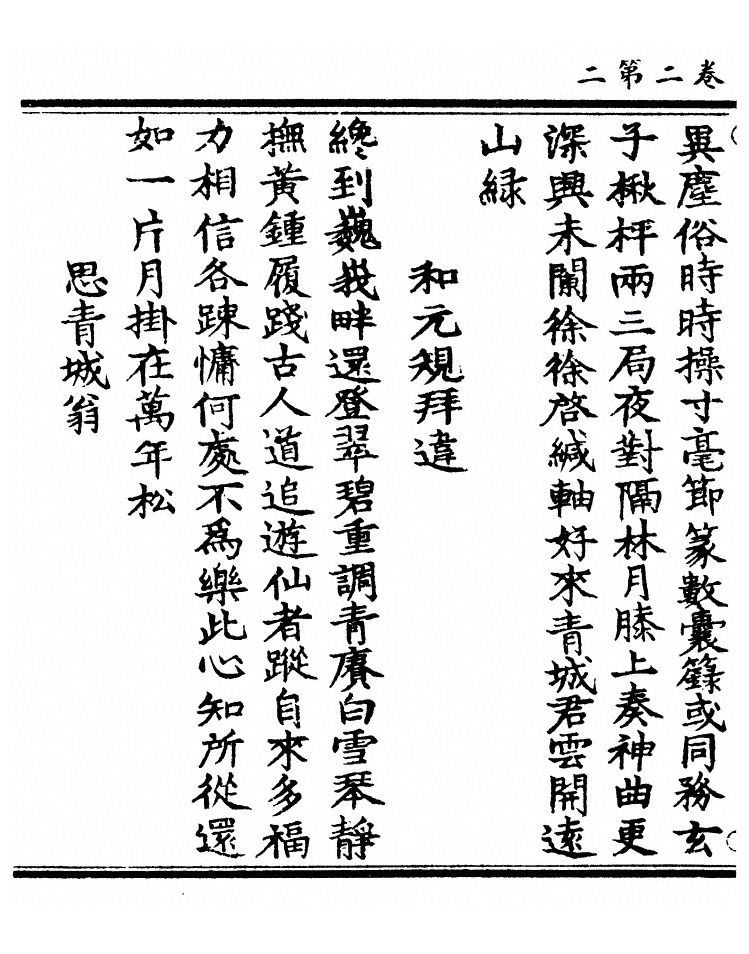 卷二第二
異塵俗時時操寸毫節篆數囊籙或同務玄
子楸枰兩三局夜對隔林月膝上奏神曲更
深興未闌徐徐啓緘軸好來青城君雲開遠
山緑
和元規拜違
纔到巍峩畔還登翠碧重調青賡白雪琴靜
撫黃鍾履踐古人道追遊仙者蹤自來多福
力相信各踈慵何處不爲樂此心知所從還
如一片月掛在萬年松
思青城翁